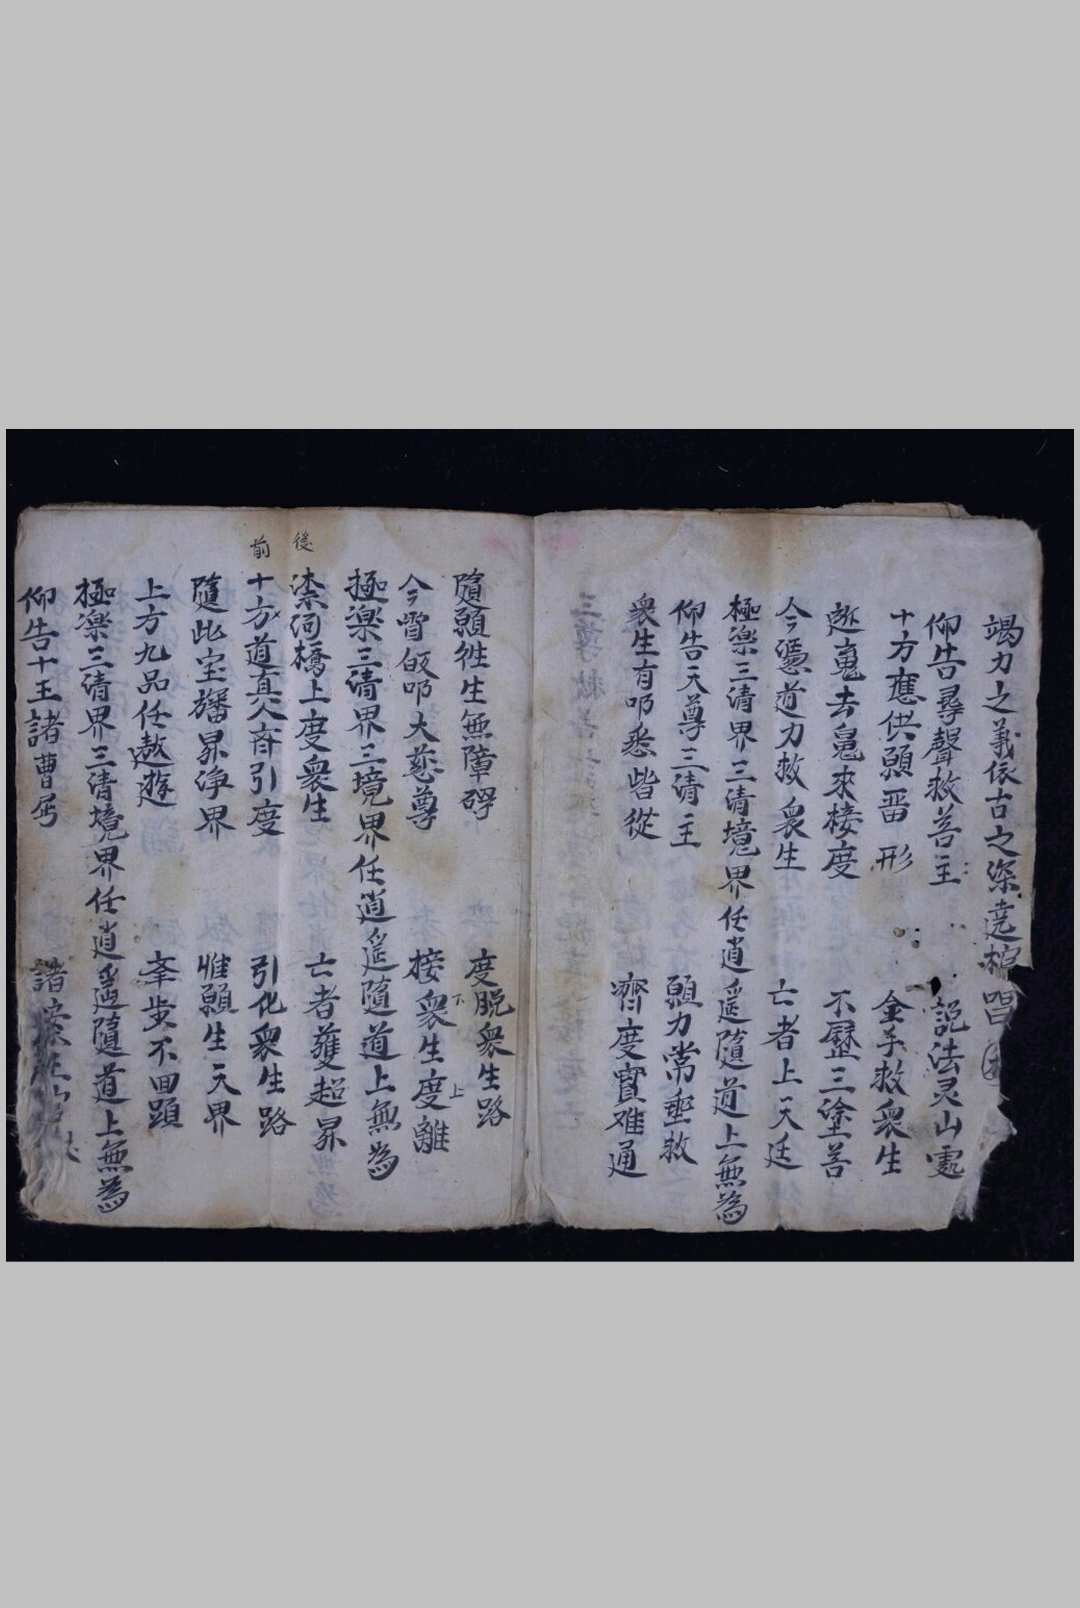 竭力之義依古之深遶棺唱
仰告尋聲救苦主　説法灵山處
十方應供願畱形　金手救衆生
逝䰟去鬼來接度　不歷三塗苦
今憑道力救衆生　亡者上天廷
極楽三清界三清境界任逍遥隨道上無為
仰告天尊三清主　願力常垂救
衆生有叩悉皆從　濟度實难通
隨願徃生無障碍　度脱衆生路
今宵皈叩大慈尊　接衆生度離
下　上
極楽三清界三境界任逍遥隨道上無為
後
柰河橋上度衆生　亡者䕶超昇
前
十方道真人育引度　引化衆生路
隨此宝旛昇浄界　惟願生天界
上方九品任遨遊　挙步不回頭
極楽三清界三清境界任逍遥隨道上無為
仰告十王諸曹